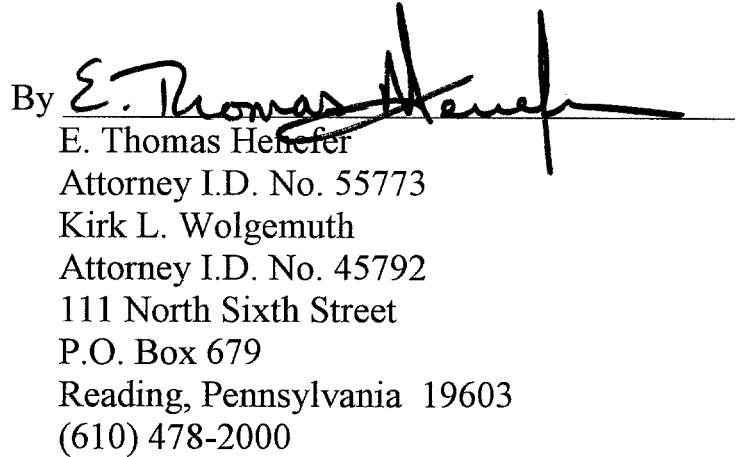 By E. Thomas Henefer
E. Thomas Henefer
Attorney I.D. No. 55773
Kirk L. Wolgemuth
Attorney I.D. No. 45792
111 North Sixth Street
P.O. Box 679
Reading, Pennsylvania 19603
(610) 478-2000